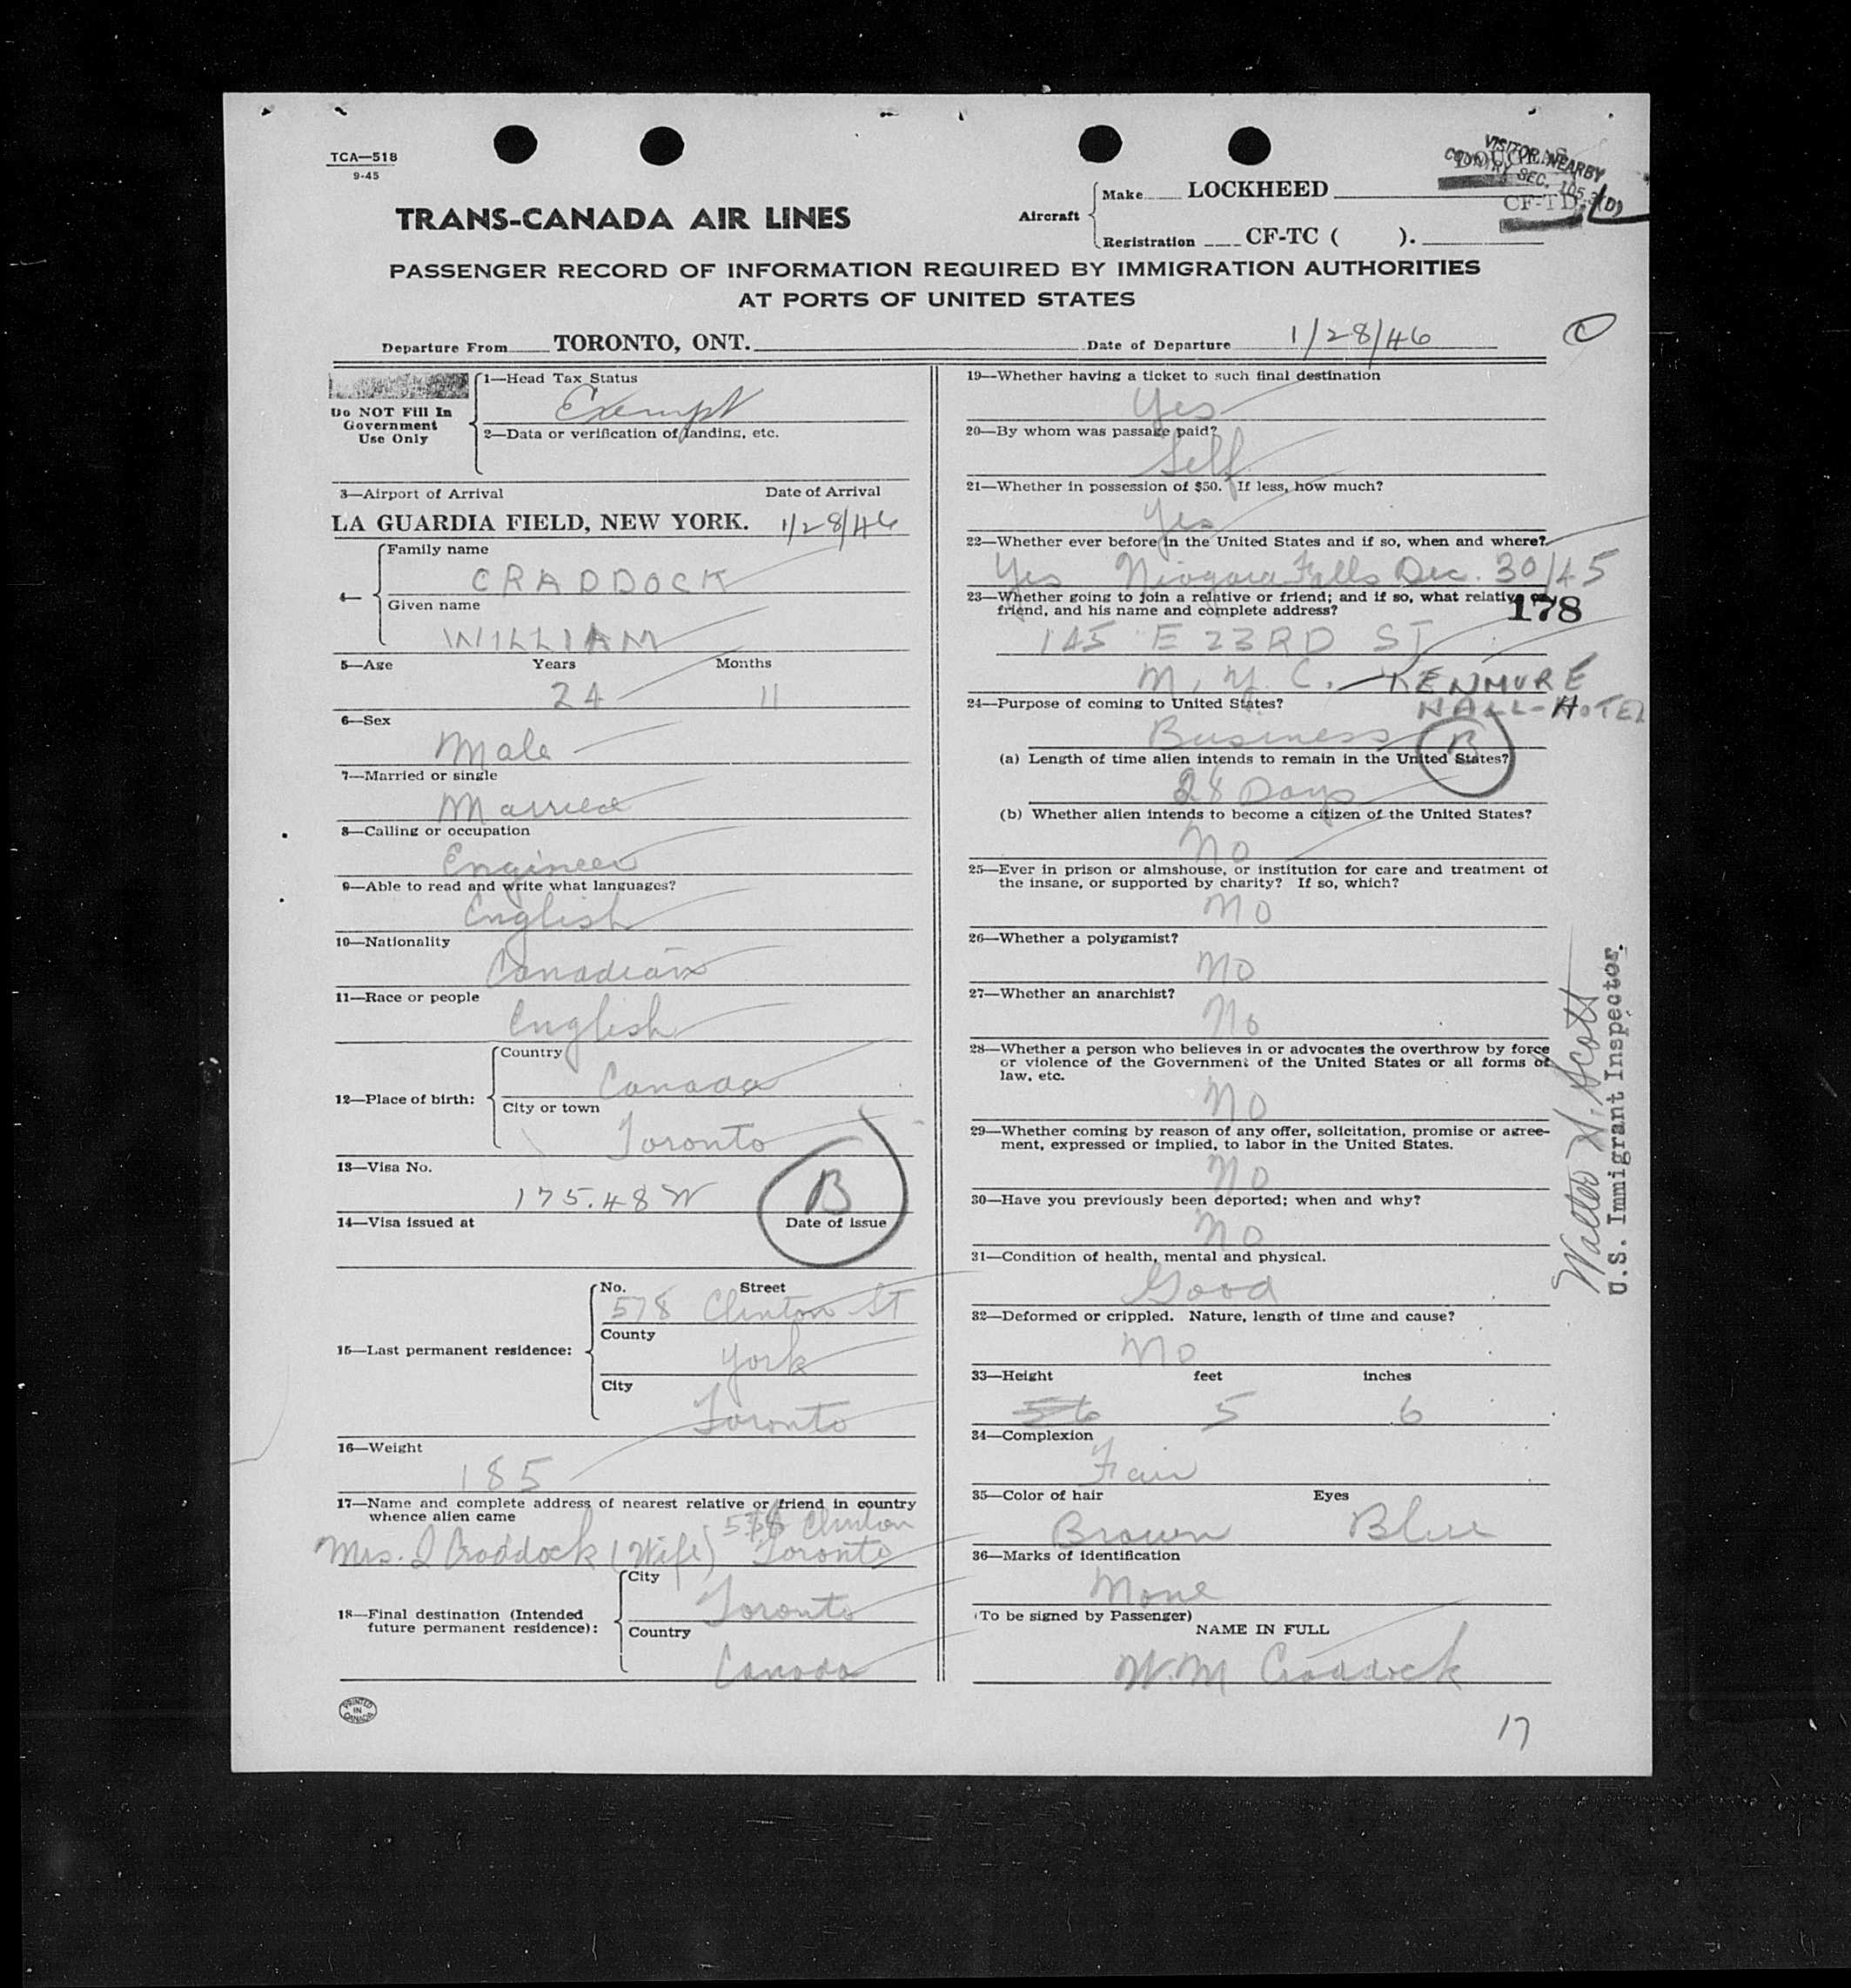 TCA—518
9-45
VISITOR NEARBY
COUNTRY SEC. 105.3(D)
DOUGLAS
CF-TD
TRANS-CANADA AIR LINES
Aircraft
Make LOCKHEED
Registration CF-TC ( ).
PASSENGER RECORD OF INFORMATION REQUIRED BY IMMIGRATION AUTHORITIES
AT PORTS OF UNITED STATES
Departure From TORONTO, ONT. Date of Departure 1/28/46
C
Do NOT Fill In
Government
Use Only
1—Head Tax Status
Exempt
2—Data or verification of landing, etc.
3—Airport of Arrival Date of Arrival
LA GUARDIA FIELD, NEW YORK. 1/28/46
4—
Family name
CRADDOCK
Given name
WILLIAM
5—Age Years Months
24 11
6—Sex
Male
7—Married or single
Married
8—Calling or occupation
Engineer
9—Able to read and write what languages?
English
10—Nationality
Canadian
11—Race or people
English
12—Place of birth:
Country
Canada
City or town
Toronto
13—Visa No.
175.48 W
B
14—Visa issued at Date of issue
15—Last permanent residence:
No. Street
578 Clinton ST
County
York
City
Toronto
16—Weight
185
17—Name and complete address of nearest relative or friend in country
whence alien came
578 Clinton
Mrs. I Craddock (Wife) Toronto
18—Final destination (Intended
future permanent residence):
City
Toronto
Country
Canada
PRINTED
IN
CANADA
19—Whether having a ticket to such final destination
Yes
20—By whom was passage paid?
Self
21—Whether in possession of $50. If less, how much?
Yes
22—Whether ever before in the United States and if so, when and where?
Yes Niagara Falls Dec. 30/45
23—Whether going to join a relative or friend; and if so, what relative or
friend, and his name and complete address?
178
145 E 23RD ST
N. Y. C. — KENMURE
HALL-HOTEL
24—Purpose of coming to United States?
Business
B
(a) Length of time alien intends to remain in the United States?
28 Days
(b) Whether alien intends to become a citizen of the United States?
No
25—Ever in prison or almshouse, or institution for care and treatment of
the insane, or supported by charity? If so, which?
No
26—Whether a polygamist?
No
27—Whether an anarchist?
No
28—Whether a person who believes in or advocates the overthrow by force
or violence of the Government of the United States or all forms of
law, etc.
No
29—Whether coming by reason of any offer, solicitation, promise or agree-
ment, expressed or implied, to labor in the United States.
No
30—Have you previously been deported; when and why?
No
31—Condition of health, mental and physical.
Good
32—Deformed or crippled. Nature, length of time and cause?
No
33—Height feet inches
56 5 6
34—Complexion
Fair
35—Color of hair Eyes
Brown Blue
36—Marks of identification
None
(To be signed by Passenger)
NAME IN FULL
W.M Craddock
17
Walter H. Scott
U.S. Immigrant Inspector.